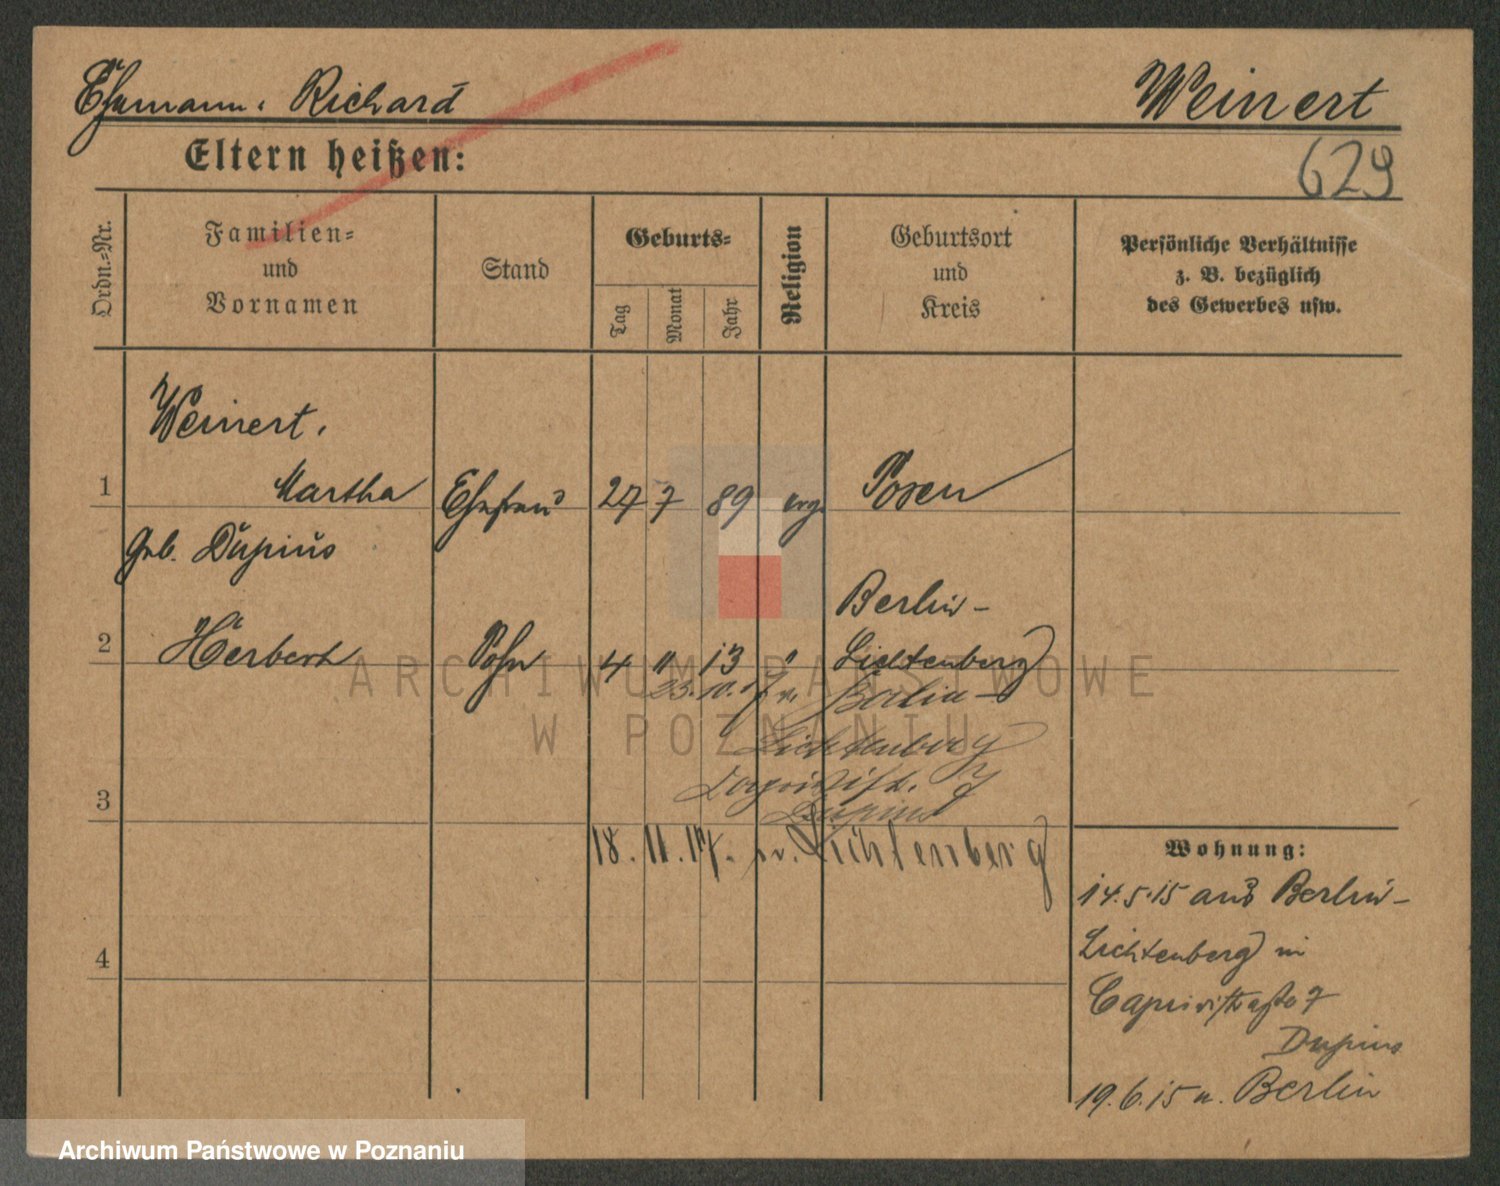 Ehemann: Richard
Weinert
Eltern heißen:
629
Ordn.-Nr.
Familien-
und
Vornamen
Stand
Geburts-
Tag
Monat
Jahr
Religion
Geburtsort
und
Kreis
Persönliche Verhältnisse
z. B. bezüglich
des Gewerbes usw.
Weinert,
1 Martha Ehefrau 27 7 89 evg. Posen
geb. Dupius
Berlin-
2 Herbert Sohn 4 11 13 " Lichtenberg
23.10.17 v. Berlin-
Lichtenberg
Dupius
3
18.11.17. n. Lichtenberg
Wohnung:
14.5.15 aus Berlin-
Lichtenberg in
4
Caprivistraße 7
Dupius
19.6.15 n. Berlin
ARCHIWUM PAŃSTWOWE
W POZNANIU
Archiwum Państwowe w Poznaniu